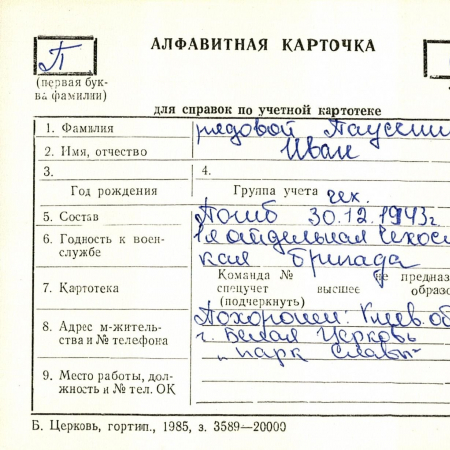 АЛФАВИТНАЯ КАРТОЧКА
П
(первая бук-
ва фамилии)
для справок по учетной картотеке
1. Фамилия рядовой
2. Имя, отчество Иван
3. 4.
Год рождения Группа учета чех.
5. Состав Погиб 30.12.1943г
6. Годность к воен- 1я отдельная Чехос
службе кая бригада
Команда № не предназ
7. Картотека спецучет высшее образо
(подчеркнуть)
8. Адрес м-житель- Похоронен: Киев. об
ства и № телефона г. Белая Церковь
„парк Славы"
9. Место работы, дол-
жность и № тел. ОК
Б. Церковь, гортип., 1985, з. 3589—20000